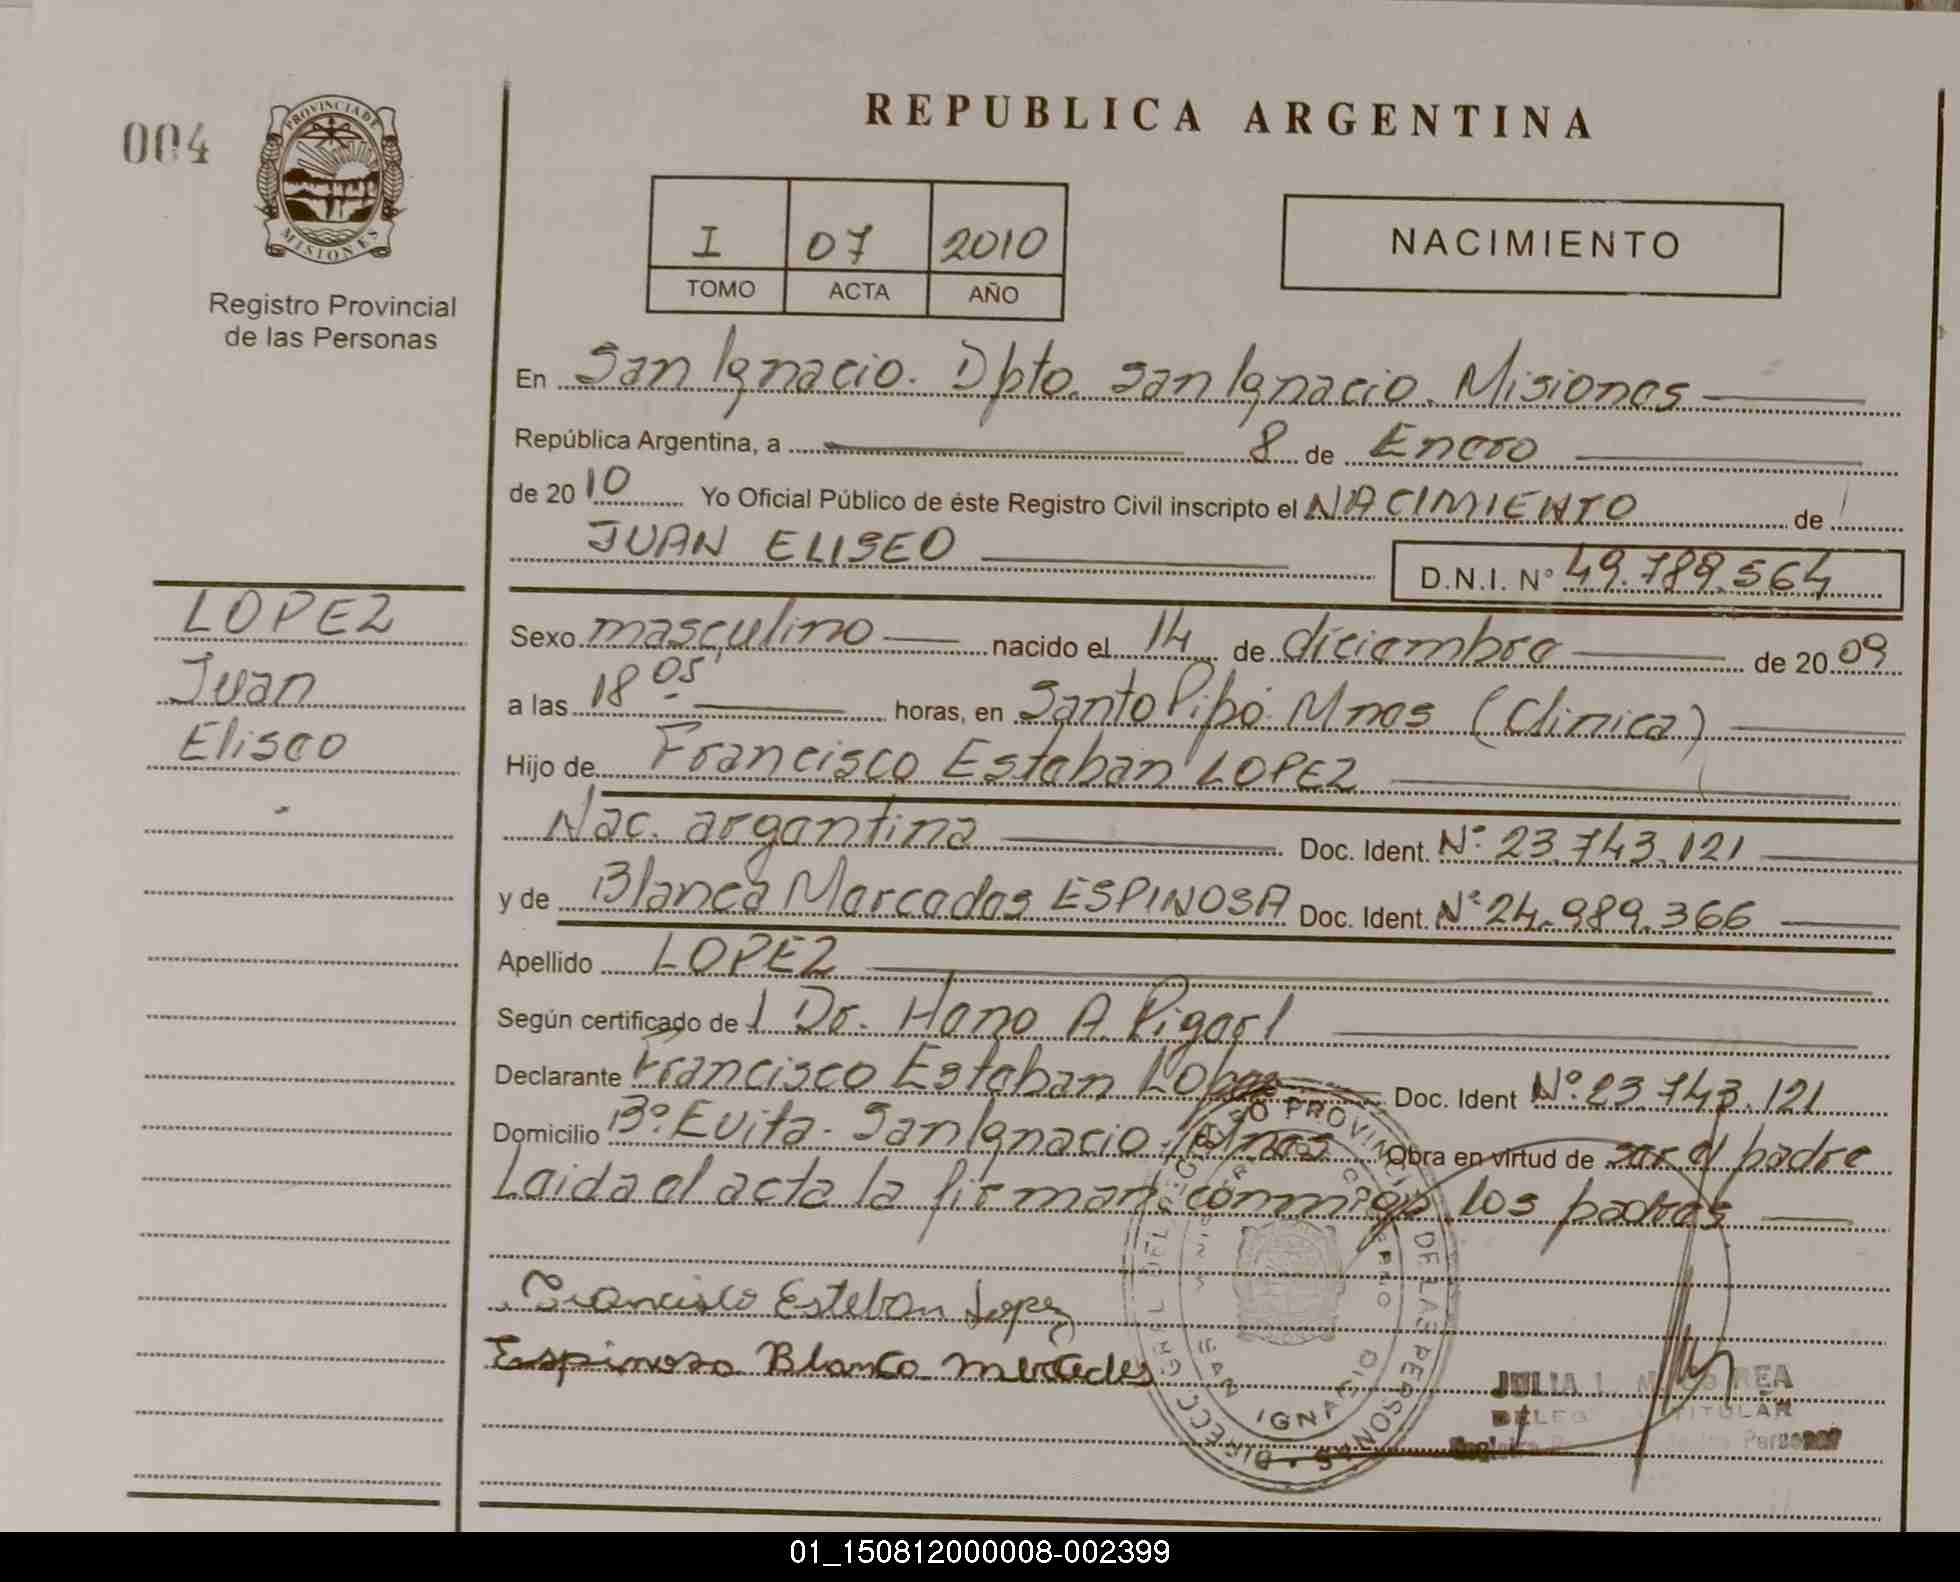 004
PROVINCIA DE
MISIONES
Registro Provincial
de las Personas
REPUBLICA ARGENTINA
I 07 2010
TOMO ACTA AÑO
NACIMIENTO
En San Ignacio. Dpto. San Ignacio. Misiones
República Argentina, a 8 de Enero
de 2010 Yo Oficial Público de éste Registro Civil inscripto el NACIMIENTO de
JUAN ELISEO
D.N.I. Nº 49.789.564
LOPEZ
Juan
Eliseo
Sexo masculino nacido el 14 de diciembre de 2009
a las 18 05 horas, en Santo Pipó. Mnes (Clinica)
Hijo de Francisco Esteban LOPEZ
Nac. argentina Doc. Ident. Nº 23.743.121
y de Blanca Mercedes ESPINOSA Doc. Ident. Nº 24.989.366
Apellido LOPEZ
Según certificado de l Dr. Hano A.
Declarante Francisco Esteban Lopez Doc. Ident Nº 23.743.121
Domicilio Bº Evita - San Ignacio. Mnes Obra en virtud de ser el padre
Leida el acta la firman conmigo los padres
Francisco Esteban Lopez
Espinosa Blanca Mercedes
DE LAS PERSONAS
SAN IGNACIO
JULIA L.
TITULAR